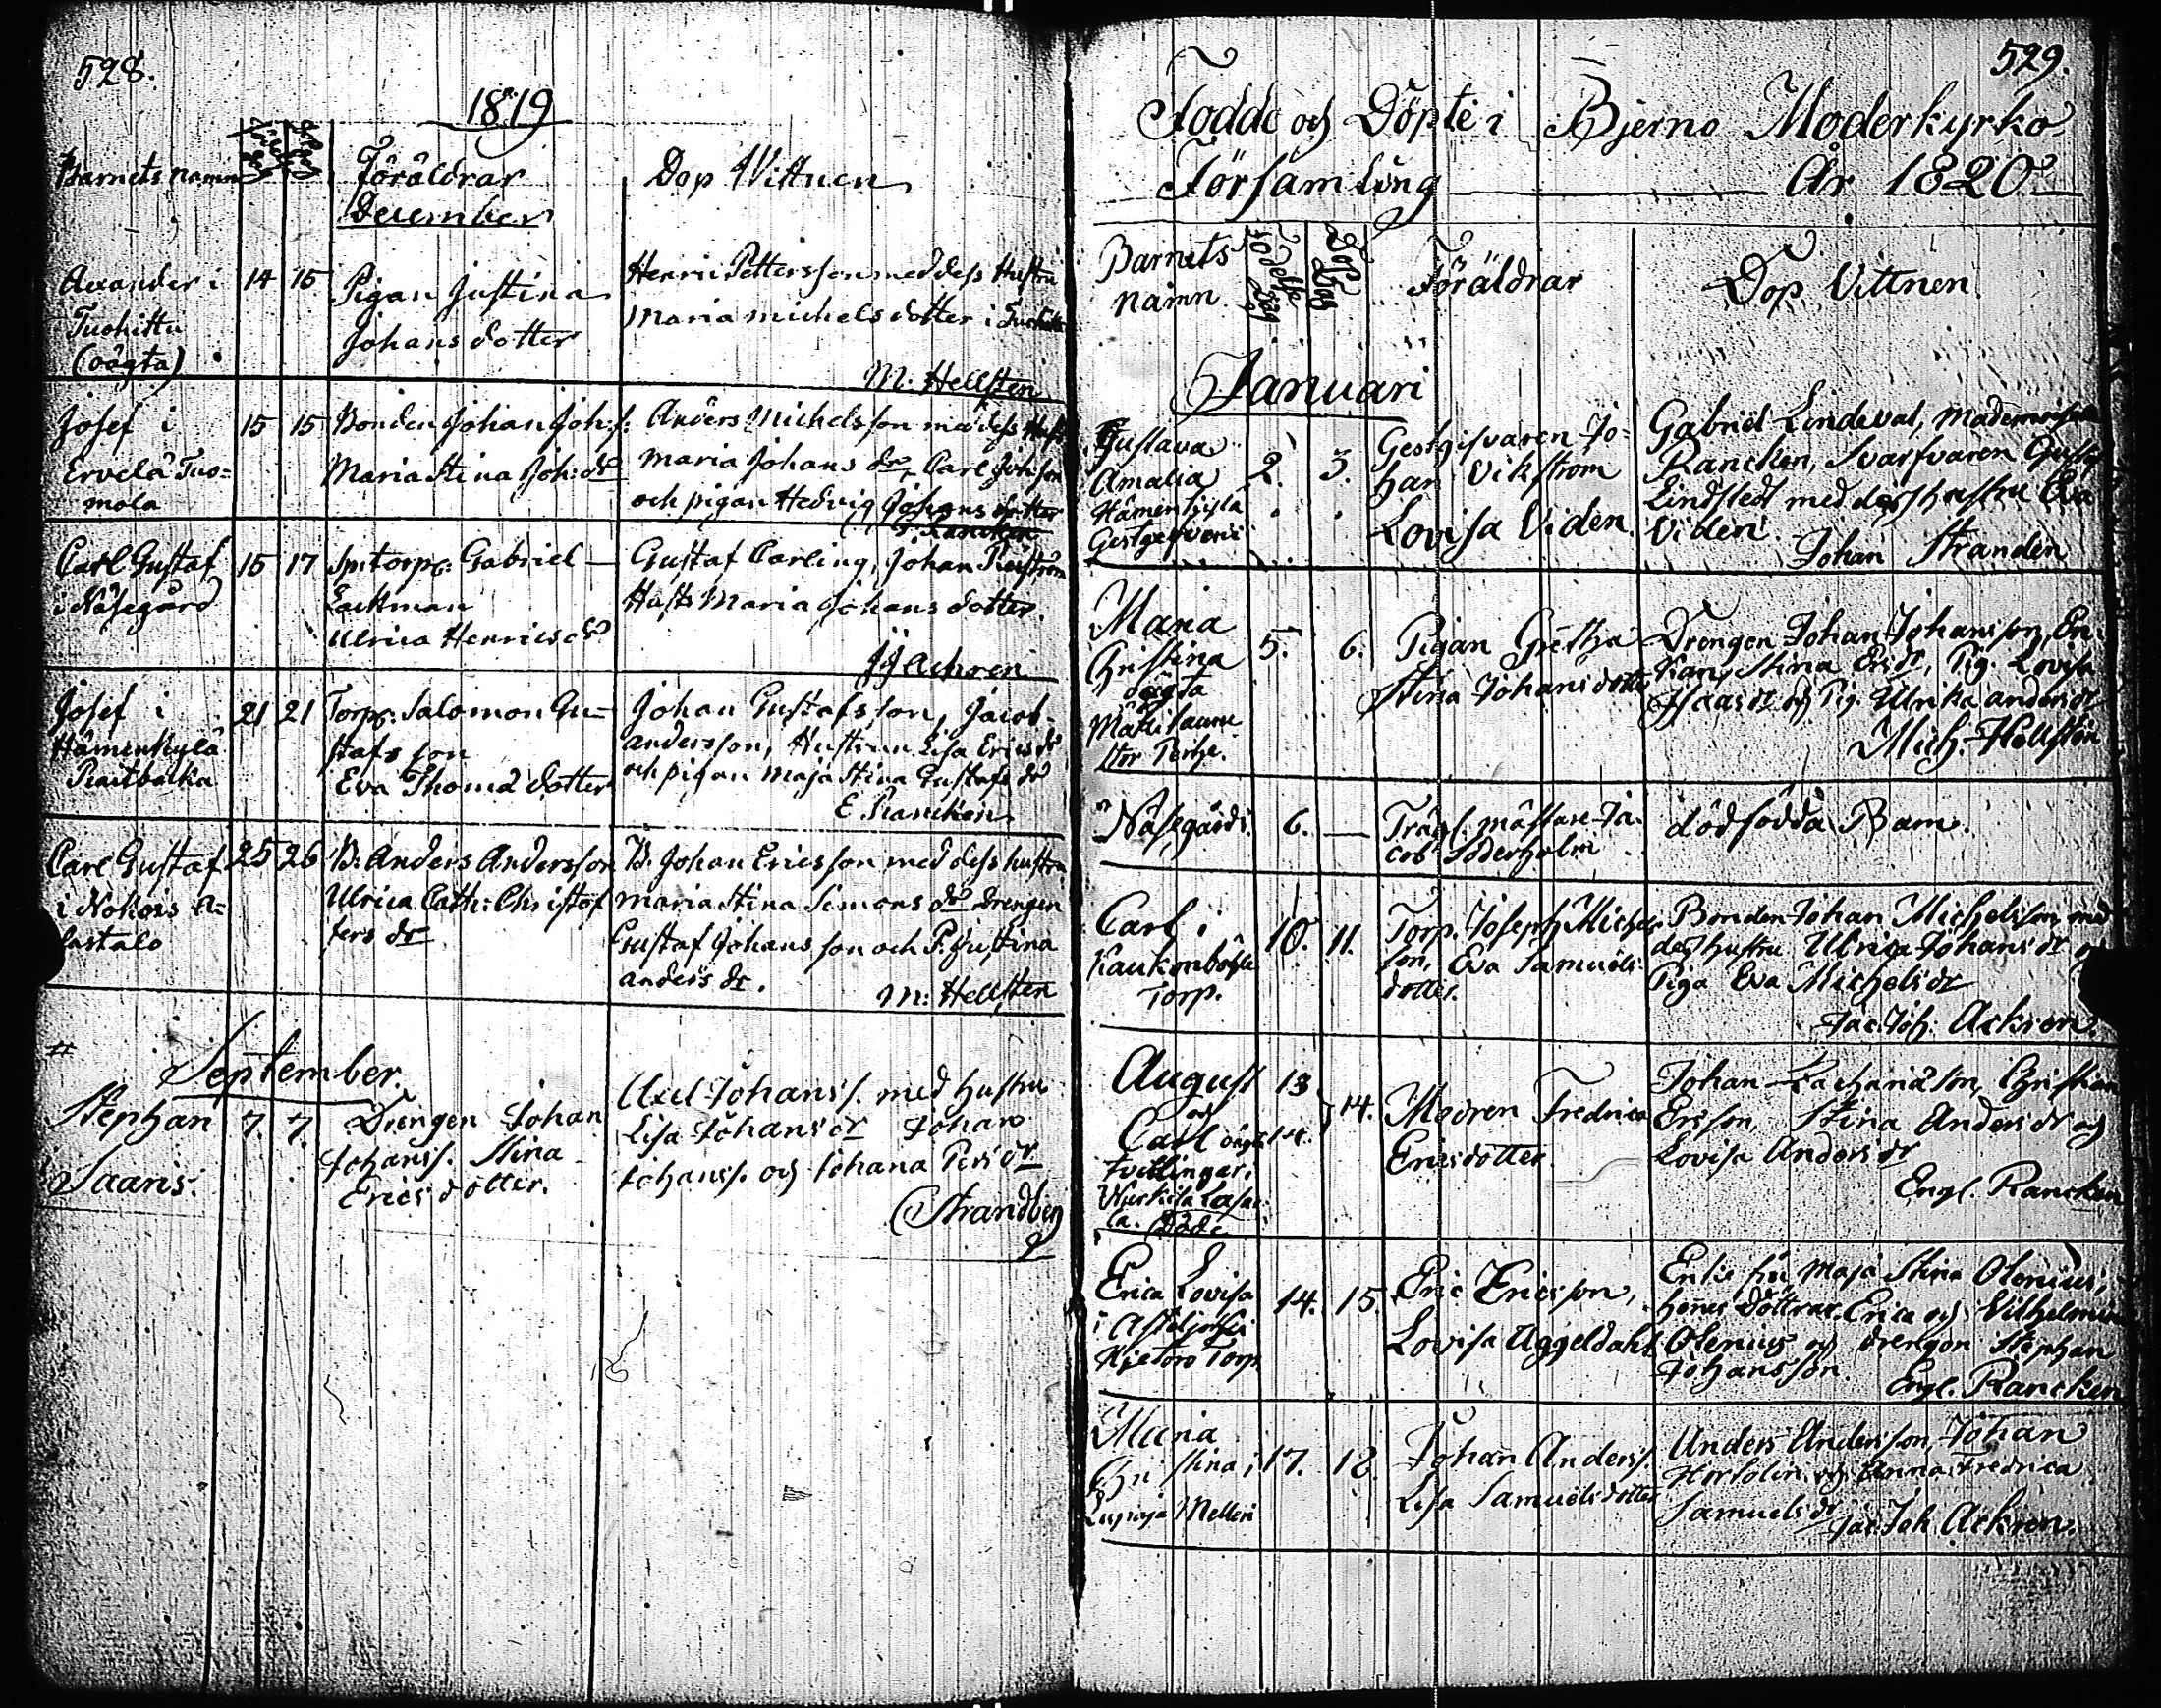 528.
1819
Barnets namn
Föräldrar
Dop Vittnen
December
Alexander i
Tuohittu
(oägta)
14 15
Pigan Justina
Johans dotter
Henric Pettersson med dess Hustru
Maria Michels dotter i
M. Hellsten
Josef i
Ervelä Tuo=
mola
15 15
Bonden Johan Joh:s:
Maria Stina Joh: dr
Anders Michelsson med dess
Maria Johans dr, Carl Johsson
och pigan Hedvig Johans dotter
E. Rancken
Carl Gustaf
i Näsegård
15 17
Sp:torp: Gabriel
Lackman
Ulrica Henrics dr
Gustaf Carling, Johan
Hust: Maria Johans dotter.
JJ Ackren
Josef i
Hämenkylä
21 21
Torp: Salomon Gu=
stafsson
Eva Thomä dotter
Johan Gustafsson, Jacob
Andersson, Hustrun Lisa Erics dr
och pigan Maja Stina Gustafs dr
E. Rancken
Carl Gustaf
i Nokois A=
lastalo
25 26
B: Anders Andersson
Ulrica Cath: Christof
fers dr
B. Johan Ericsson med dess hustru
Maria Stina Simons dr drengen
Gustaf Johansson och P. Justina
Anders dr.
M: Hellsten
#
September.
Stephan
Saaris.
7. 7.
Drengen Johan
Johanss. Stina
Ericsdotter.
Axel Johanss. med hustru
Lisa Johansdr Johan
Johanss. och Johana Persdr
Strandberg
529.
Födde och Döpte i Bjerno Moderkyrko
Församling År 1820
Barnets
namn
Födelse
dag
Dop
Dag
Föräldrar
Dop Vittnen
Januari
Gustava
Amalia
Hämenkyla
2. 3.
Gestgifvaren Jo=
han Vikström
Lovisa Viden.
Gabriel Lindeval, Mademoiselle
Rancken, Svarfvaren Gustaf
Lindstedt med dess hustru Eva
Viden.
Johan Stranden
Maria
Christina
oägta
5. 6.
Pigan Gretha
Stina Johansdotter
Drengen Johan Johansson, En-
kan Stina Ersdr, Pig. Lovisa
Isaacsdr och Pig. Ulrika andersdr
Mich. Hellsten
Näsegård.
6. —
mästare Ja-
cob Söderholm
dödfödda Barn.
Carl i
Torp.
10. 11.
Torp. Joseph Michels-
son, Eva Samuels-
dotter.
Bonden Johan Michelsson med
dess hustru Ulrica Johansdr och
Piga Eva Michelsdr
Jac. Joh. Ackren
August
och
Carl oägta
tvillingar.
Döde
13
14.
14.
Modren Fredrica
Ericsdotter.
Johan Zachariäson, Christian
Ersson, Stina Andersdr och
Lovisa Andersdr
Engl. Rancken
Erica Lovisa
i
Torp
14. 15.
Eric Ericsson,
Lovisa Uggeldahl
Enke fru Maja Stina Olenius,
hennes döttrar Erica och Vilhelmina
Olenius och drengen Stephan
Johansson.
Engl. Rancken
Maria
Christina i
Melleri
17. 18
Johan Anderss.
Lisa Samuelsdotter
Anders Andersson, Johan
och Anna Fredrica
Samuelsdr
Jac. Joh Ackren.